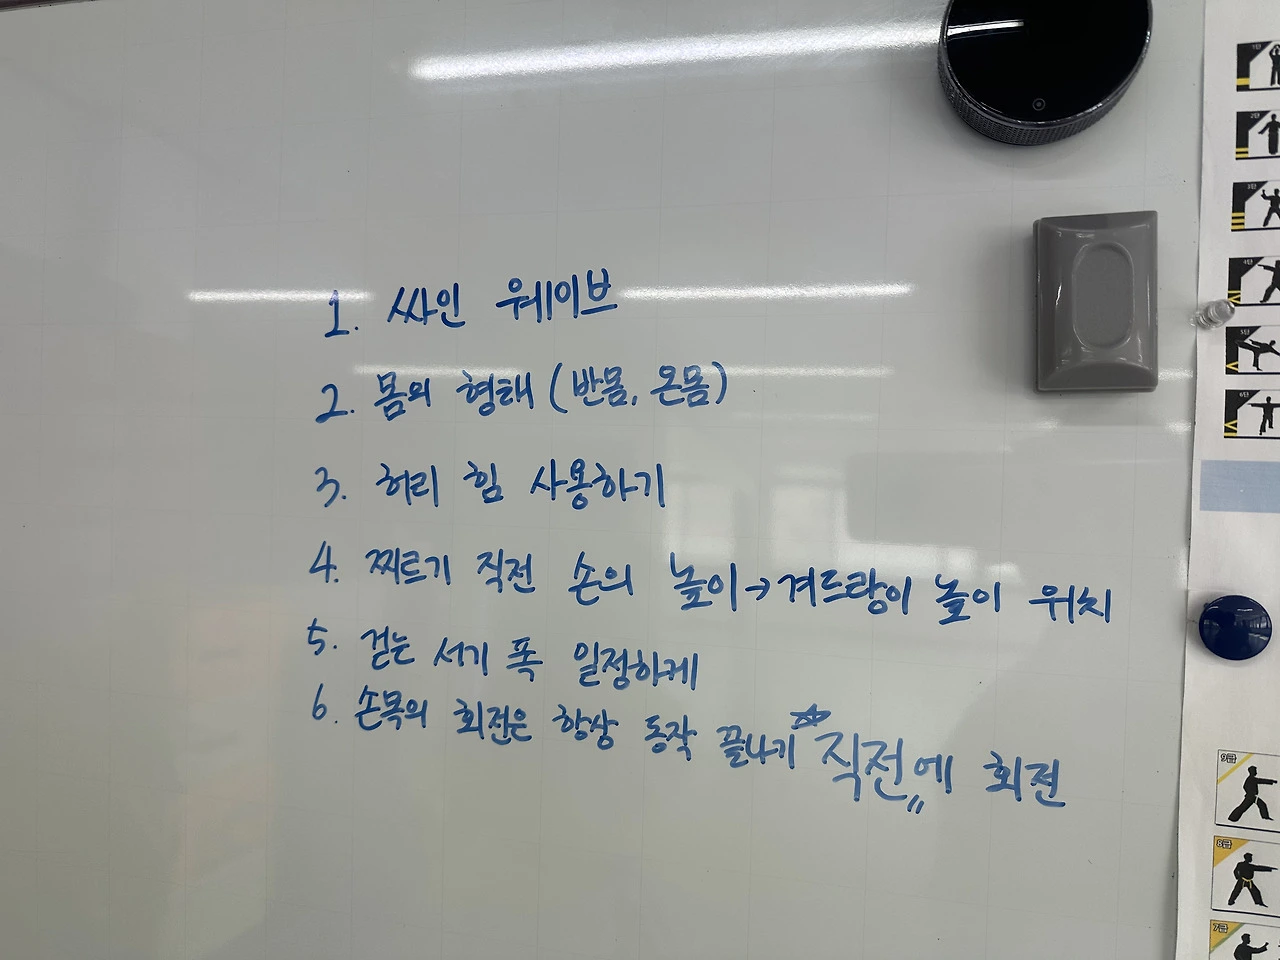 1. 싸인 웨이브
2. 몸의 형태 (반몸, 온몸)
3. 허리 힘 사용하기
4. 찌르기 직전 손의 높이→겨드랑이 높이 위치
5. 걷는 서기 폭 일정하게
6. 손목의 회전은 항상 동작 끝나기 ☆직전에 회전
1단
2단
3단
4단
5단
6단
9급
8급
7급